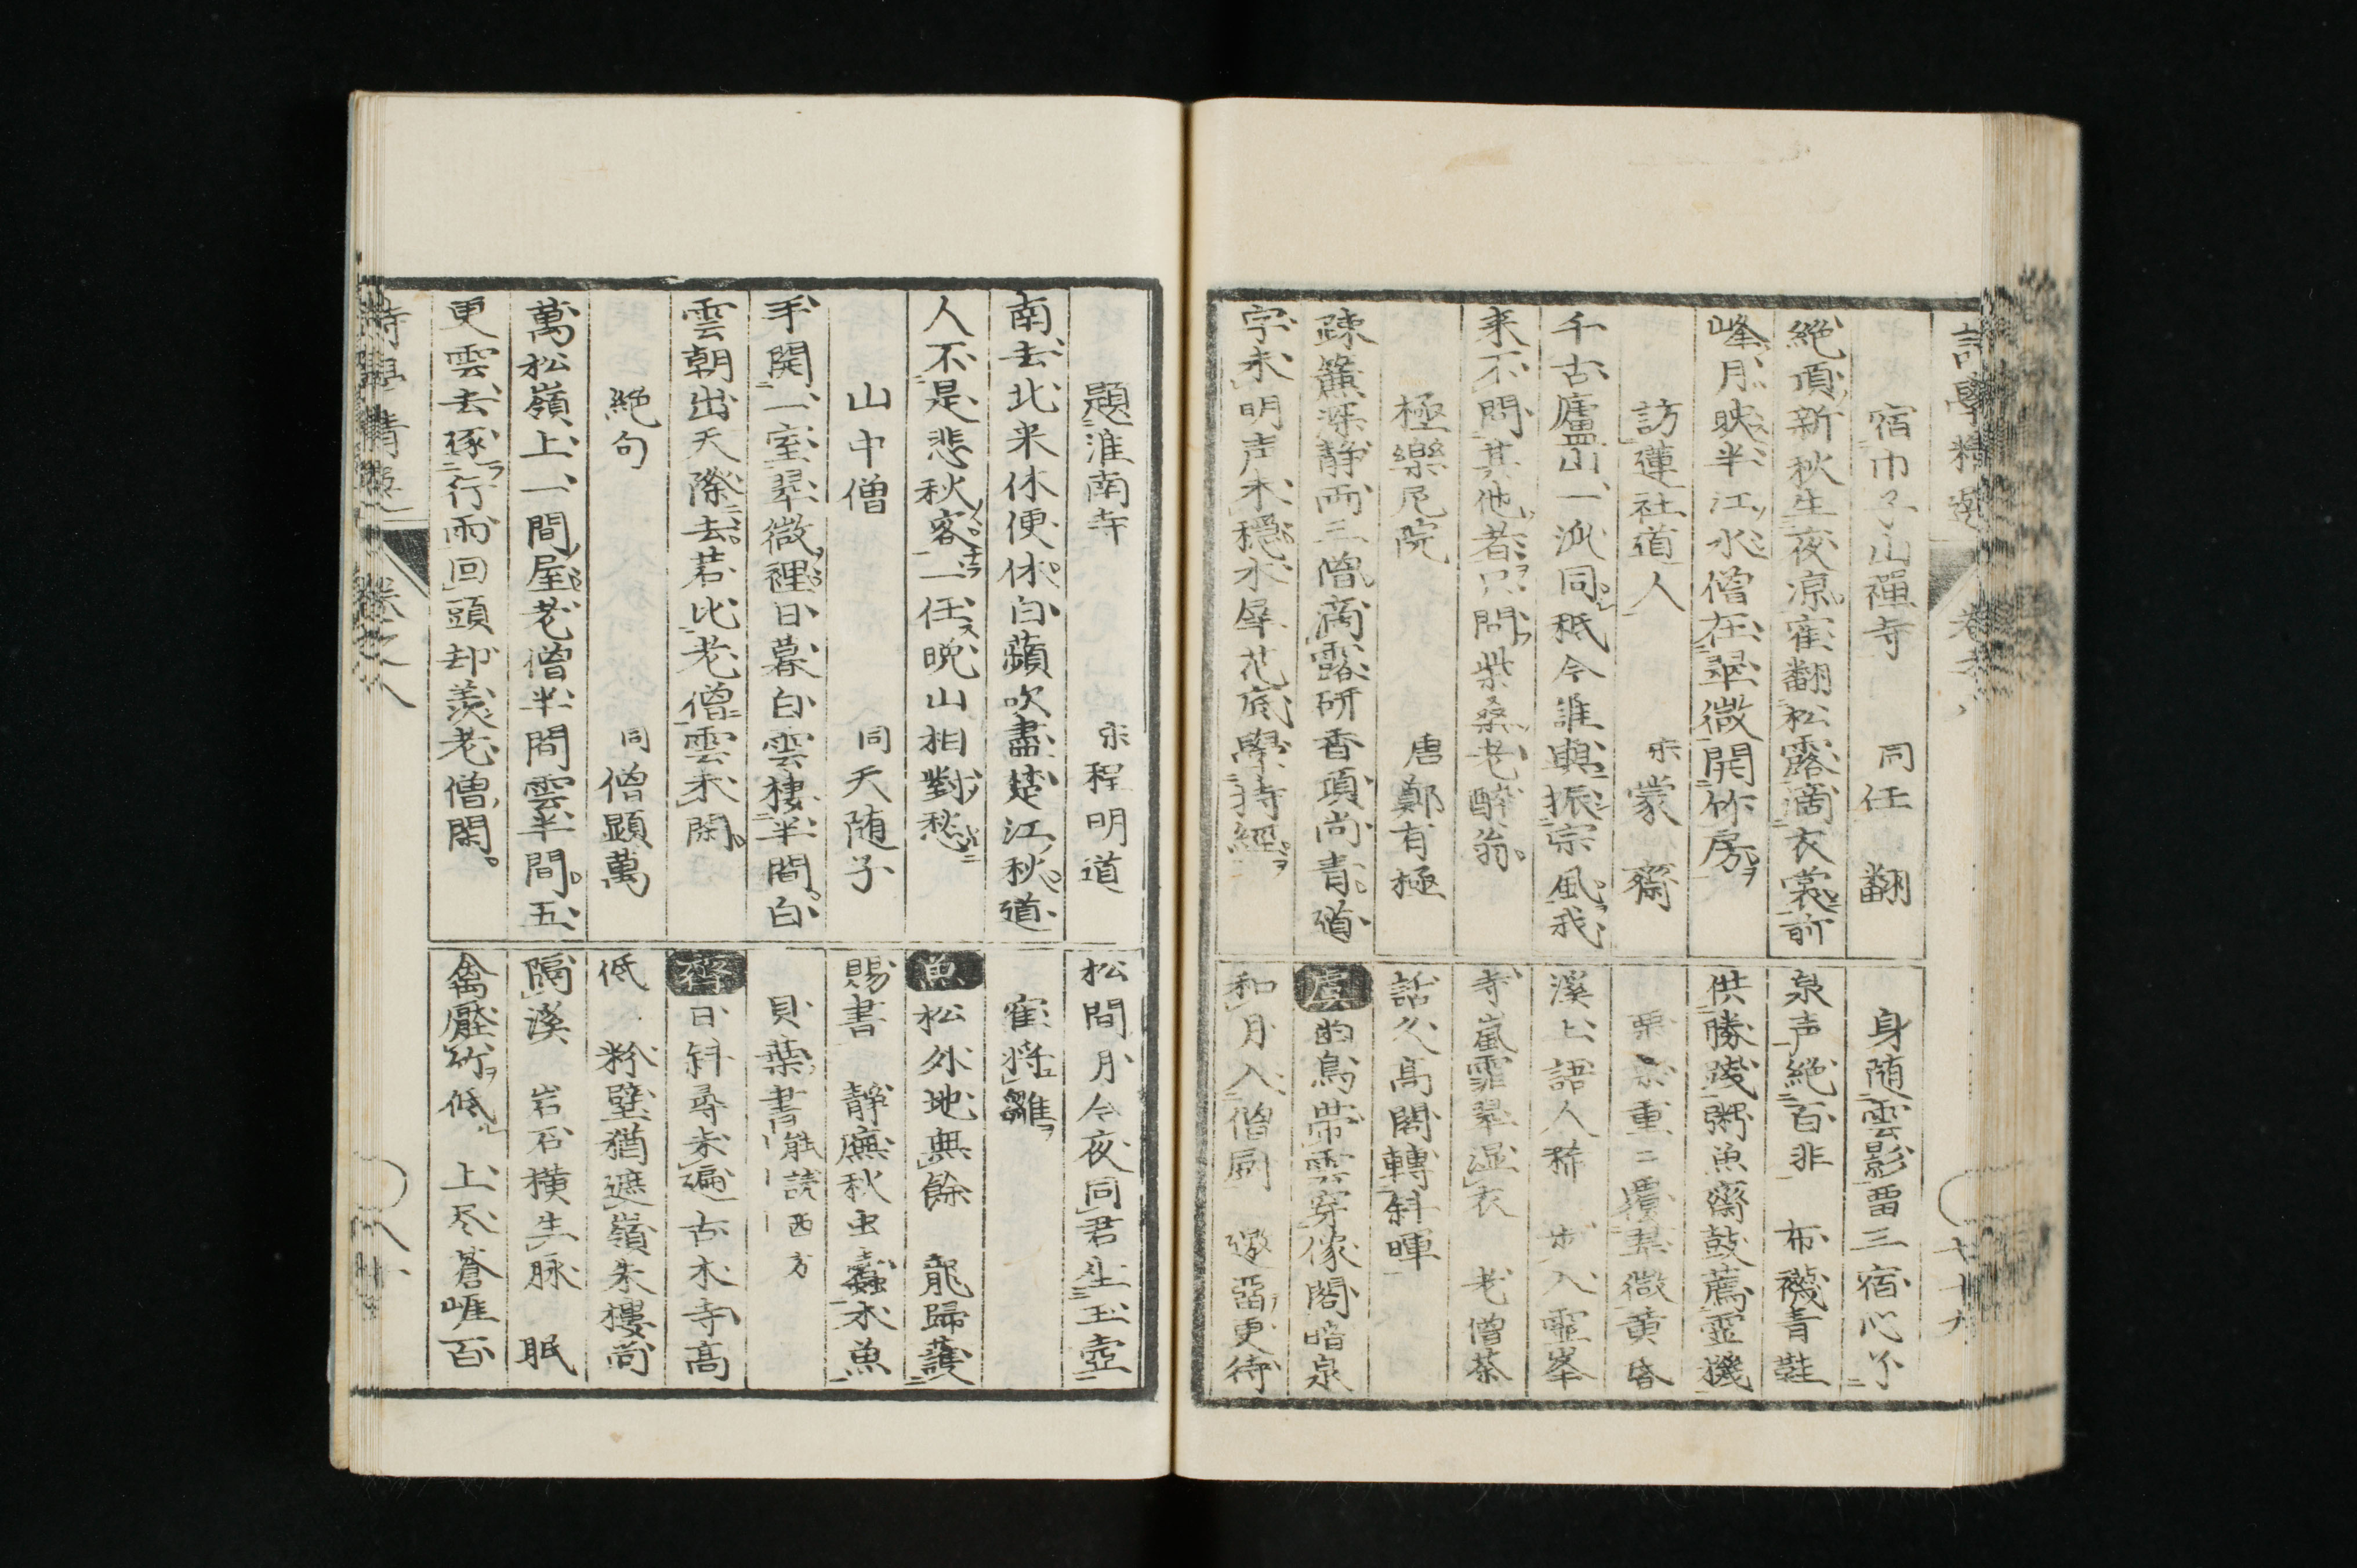 詩學精選 卷之八
宿巾子山禪寺 同任翻
絶頂新秋生夜凉寉翻松露滴衣裳前
峰月映半江水僧在翠微開竹房
訪蓮社道人 宋蒙齋
千古廬山一派同秖今誰與振宗風我
来不問其他者只問柴桑老醉翁
極樂尼院 唐鄭有極
疎簾深静両三僧滴露研香頂尚青道
字未明声未穏水犀花底學持經
身随雲影畱三宿心尒
泉声絶百非 布襪青鞋
供勝踐粥魚齋鼓薦霊機
重〻覆翠微黄昏
溪上語人稀 步入霊峯
寺嵐霏翠湿衣 老僧茶
話久高閣轉斜暉
虞 的鳥帯雲穿像閣暗泉
和月入僧扄 遥更待
七十九
題淮南寺 宋程明道
南去北来休便休白蘋吹盡楚江秋道
人不是悲秋客一任晩山相對愁
山中僧 同天随子
手関一室翠微裡日暮白雲棲半間白
雲朝出天際去若比老僧雲未閑
絶句 同僧顕萬
萬松嶺上一間屋老僧半間雲半間五
更雲去逐行雨回頭却羨老僧閑
松間月今夜同君坐玉壺
寉将雛
魚 松外地無餘 龍歸護
賜書 静廡秋虫蠹木魚
貝葉書能読西方
齊 日斜尋未遍古木寺高
低 粉壁猶遮嶺朱樓尚
隔溪 岩石横生脉 眠
禽壓竹低 上尽蒼崕百
詩學精選 卷之八
八十